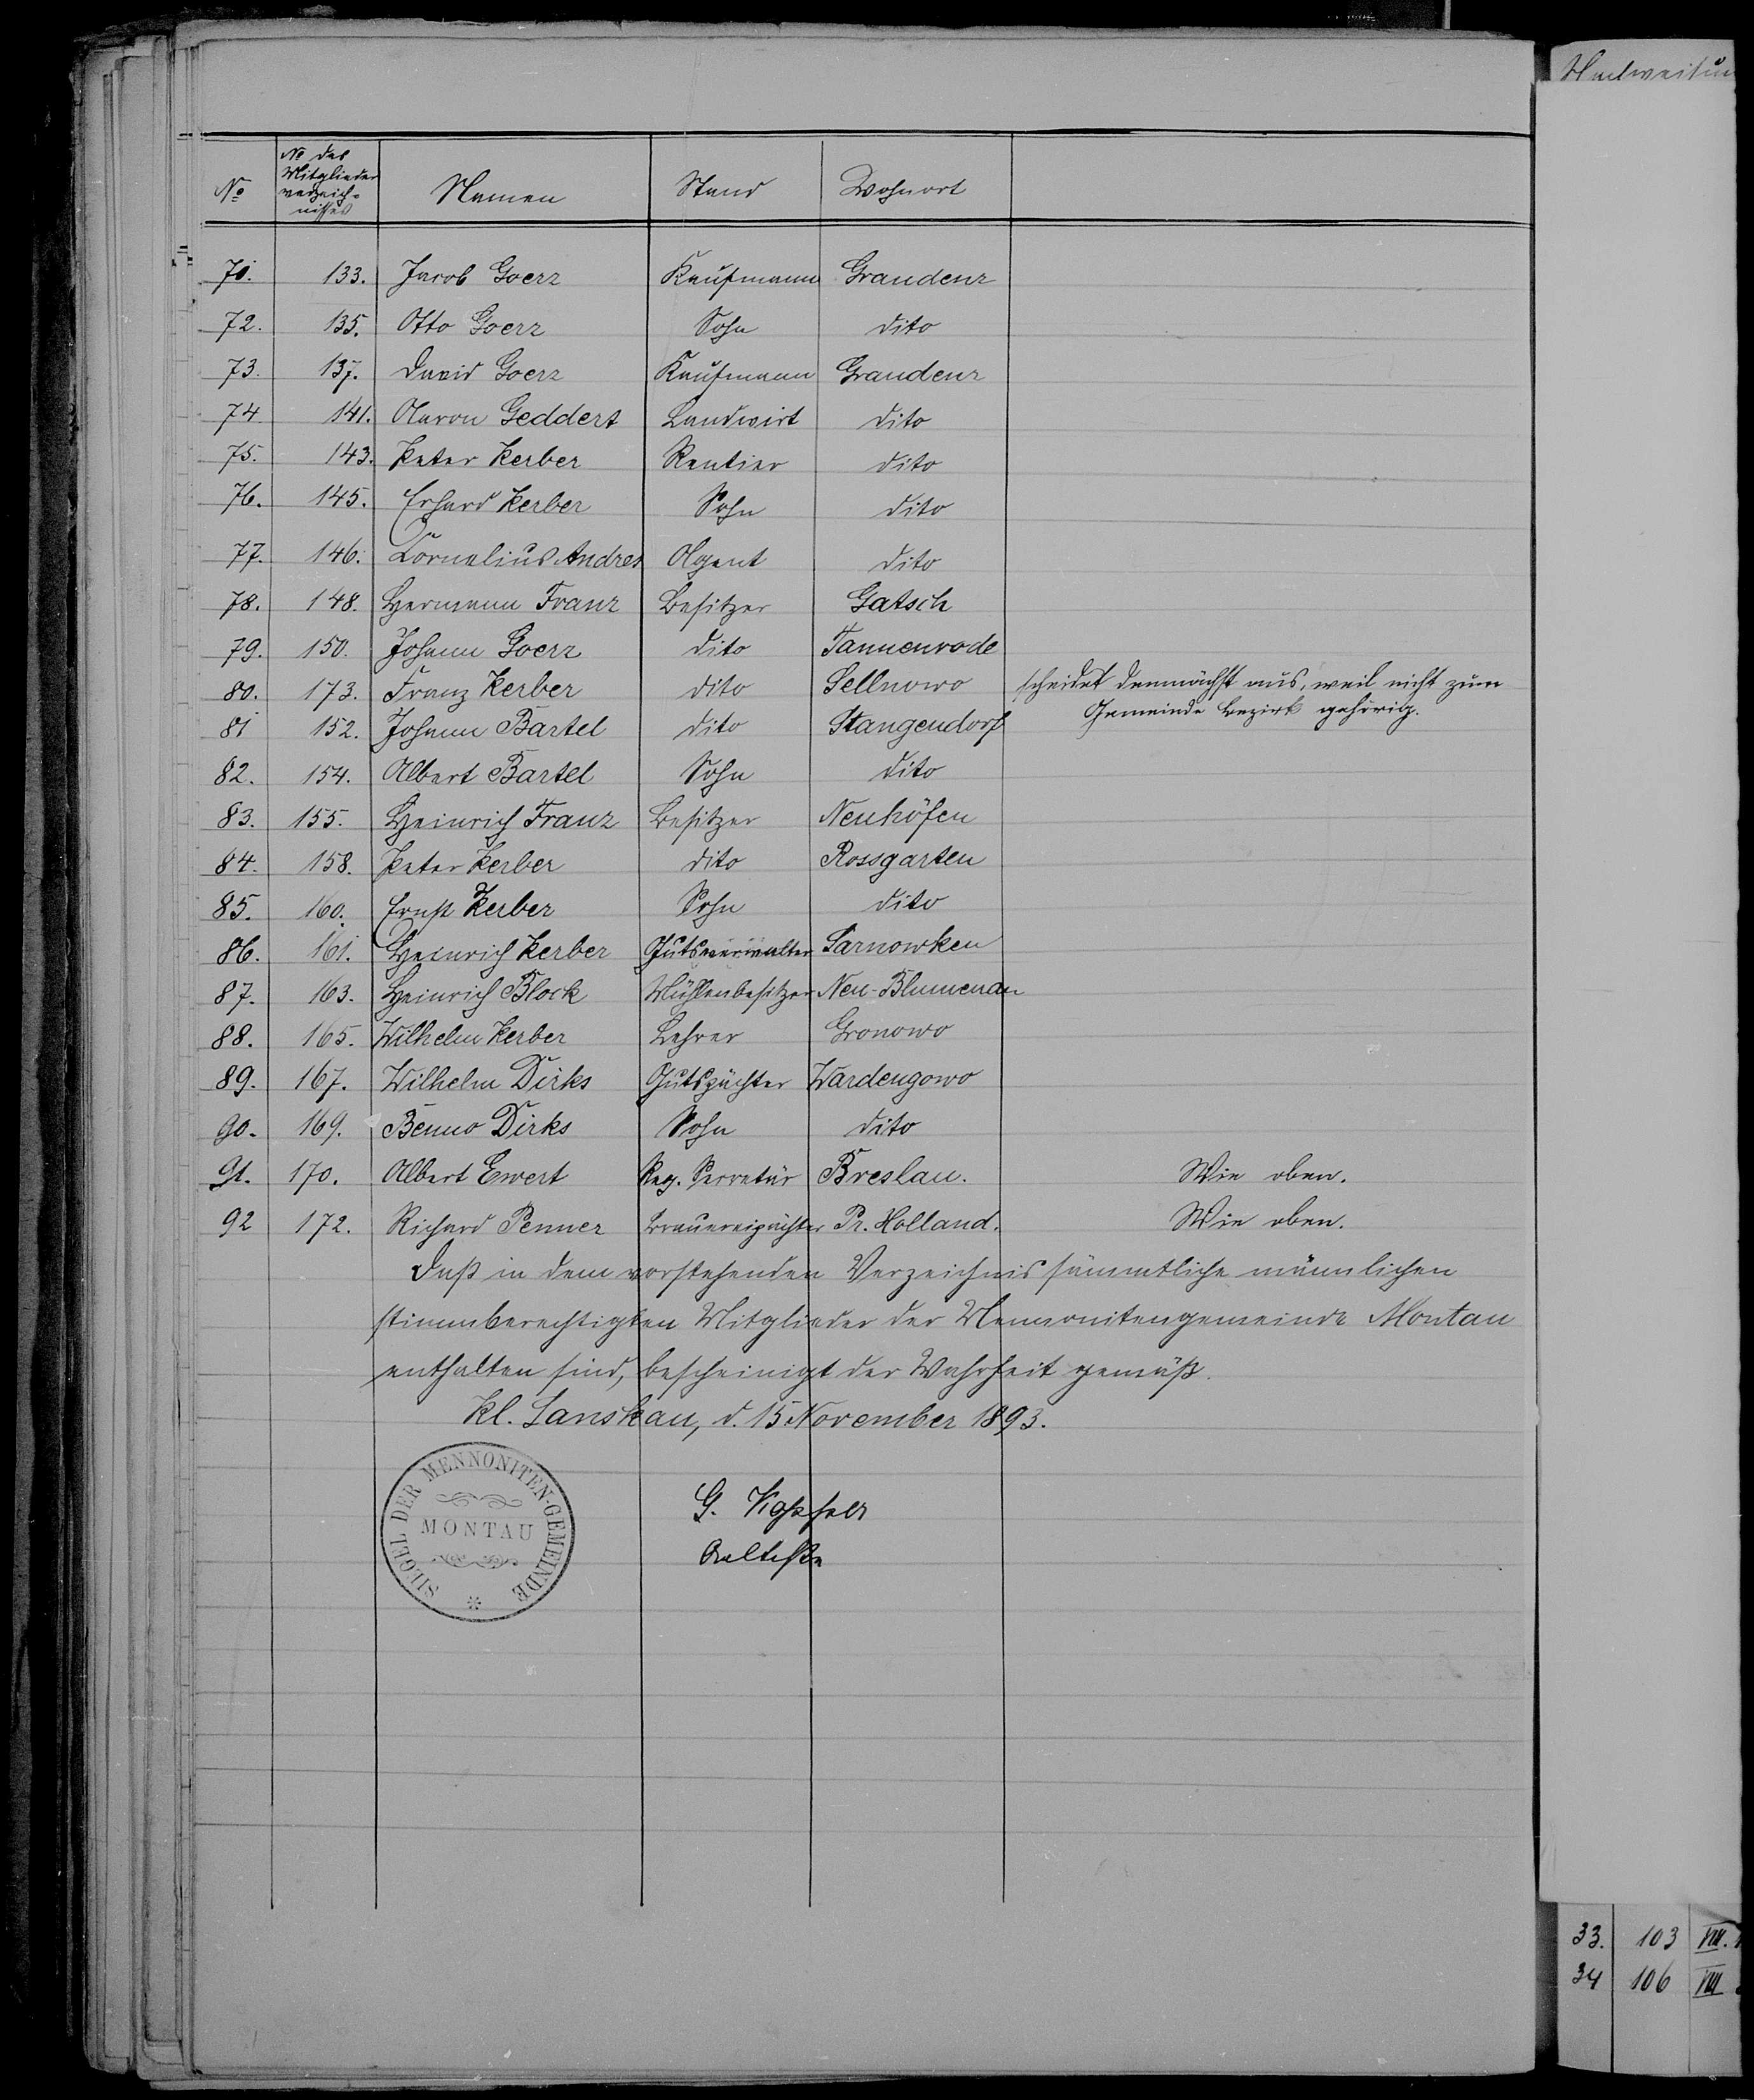 Nachweisun
No
No des
Mitglieder
verzeich=
nisses
Namen
Stand
Wohnort
71. 133. Jacob Goerz Kaufmann Graudenz
72. 135. Otto Goerz Sohn dito
73. 137. David Goerz Kaufmann Graudenz
74 141. Aaron Geddert Landwirt dito
75. 143. Peter Kerber Rentier dito
76. 145. Erhard Kerber Sohn dito
77. 146. Cornelius Andres Agent dito
78. 148. Hermann Franz Besitzer Gatsch
79. 150. Johann Goerz dito Tannenrode
80. 173. Franz Kerber dito Sellnowo scheidet demnächst aus, weil nicht zum
Gemeinde bezirk gehörig.
81 152. Johann Bartel dito Stangendorf
82. 154. Albert Bartel Sohn dito
83. 155. Heinrich Franz Besitzer Neuhöfen
84. 158. Peter Kerber dito Rossgarten
85. 160. Ernst Kerber Sohn dito
86. 161. Heinrich Kerber Gutsverwalter Sarnowken
87. 163. Heinrich Block Mühlenbesitzer Neu-Blumenau
88. 165. Wilhelm Kerber Lehrer Gronowo
89. 167. Wilhelm Dirks Gutspächter Wardengowo
90. 169. Benno Dirks Sohn dito
91. 170. Albert Ewert Reg. Secretär Breslau. Wie oben.
92 172. Richard Penner Brauereipächter Pr. Holland. Wie oben.
Daß in dem vorstehenden Verzeichnis sämmtliche männlichen
stimmberechtigten Mitglieder der Mennonitengemeinde Montau
enthalten sind, bescheinigt der Wahrheit gemäß.
Kl. Sanskau, d. 15 November 1893.
SIEGEL DER MENNONITEN-GEMEINDE
MONTAU
G.
Aelteste
33. 103 VIII.
34 106 VIII